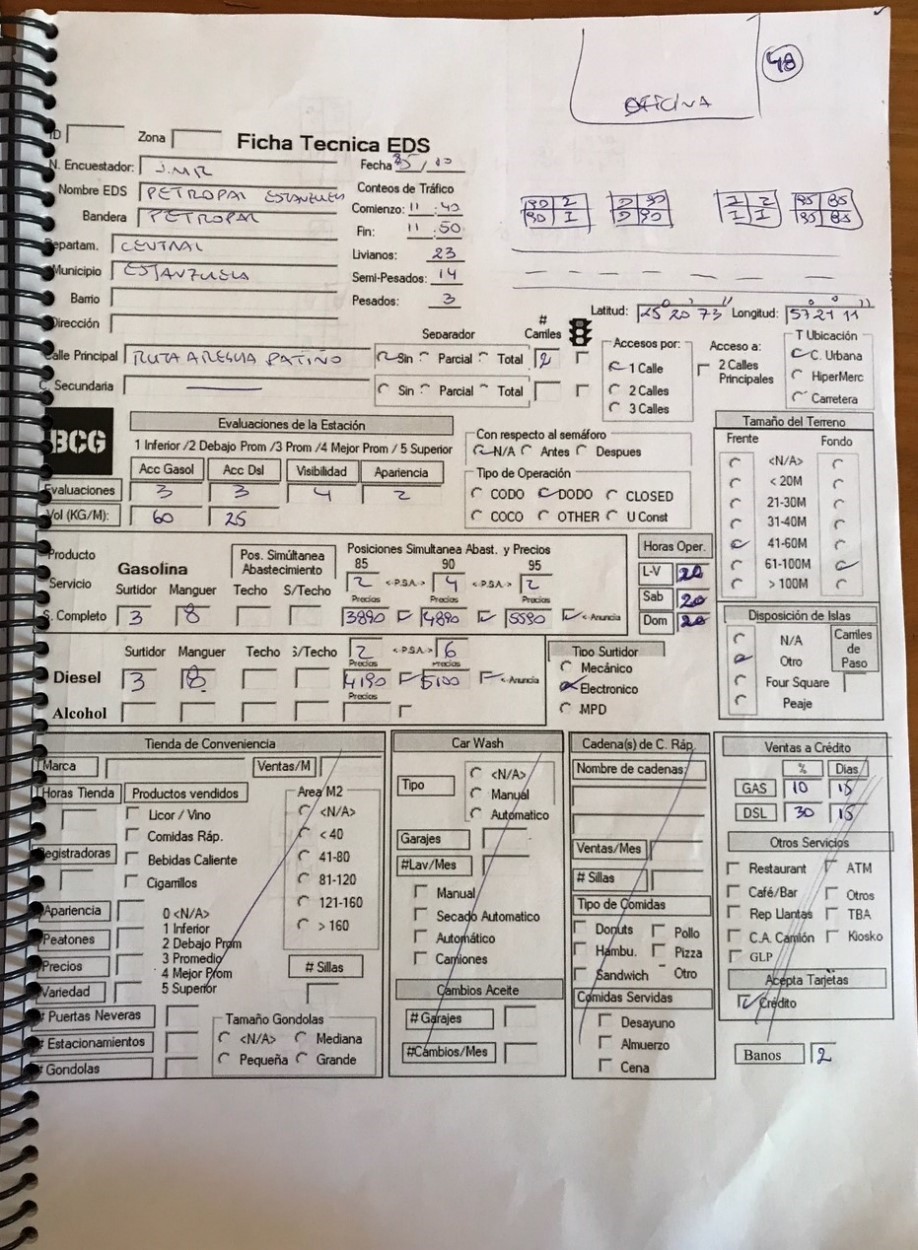 48
OFICINA
ID Zona Ficha Tecnica EDS
N. Encuestador: J.M.R Fecha /10
Nombre EDS PETROPAR ESTANZUELA Conteos de Tráfico
Bandera PETROPAR Comienzo: 11:40
Fin: 11:50
Departam. CENTRAL Livianos: 23
Municipio ESTANZUELA Semi-Pesados: 14
Barrio Pesados: 3
90 I
90 I
D 90
D 90
I I
I I
85 85
85 85
Latitud: 25 20 73 Longitud: 57 21 11
Dirección
Calle Principal RUTA AREGUA PATIÑO
C. Secundaria
Separador # Carriles
Sin Parcial Total 2
Sin Parcial Total
Accesos por:
1 Calle
2 Calles
3 Calles
Acceso a:
2 Calles Principales
T Ubicación
C. Urbana
HiperMerc
Carretera
BCG
Evaluaciones de la Estación
1 Inferior /2 Debajo Prom /3 Prom /4 Mejor Prom / 5 Superior
Acc Gasol Acc Dsl Visibilidad Apariencia
Evaluaciones 3 3 4 2
Vol (KG/M): 60 25
Con respecto al semáforo
N/A Antes Despues
Tipo de Operación
CODO DODO CLOSED
COCO OTHER U Const
Tamaño del Terreno
Frente Fondo
<N/A>
< 20M
21-30M
31-40M
41-60M
61-100M
> 100M
Producto Gasolina
Pos. Simúltanea Abastecimiento
Posiciones Simultanea Abast. y Precios
85 90 95
Servicio Surtidor Manguer Techo S/Techo 2 <-P.S.A.-> 4 <-P.S.A.-> 2
Precios Precios Precios
S. Completo 3 8 3890 4890 5590 <-Anuncia
Horas Oper.
L-V 20
Sab 20
Dom 20
Surtidor Manguer Techo S/Techo 2 <-P.S.A.-> 6
Precios Precios
Diesel 3 8 4190 5100 <-Anuncia
Precios
Alcohol
Tipo Surtidor
Mecánico
Electronico
MPD
Disposición de Islas
N/A
Otro
Four Square
Peaje
Carriles de Paso
Tienda de Conveniencia
Marca Ventas/M
Horas Tienda Productos vendidos
Licor / Vino
Comidas Ráp.
Registradoras Bebidas Caliente
Cigarrillos
Area M2
<N/A>
< 40
41-80
81-120
121-160
> 160
Apariencia
Peatones
Precios
Variedad
0 <N/A>
1 Inferior
2 Debajo Prom
3 Promedio
4 Mejor Prom
5 Superior
# Sillas
# Puertas Neveras
# Estacionamientos
# Gondolas
Tamaño Gondolas
<N/A> Mediana
Pequeña Grande
Car Wash
Tipo
<N/A>
Manual
Automatico
Garajes
#Lav/Mes
Manual
Secado Automatico
Automático
Camiones
Cambios Aceite
# Garajes
#Cambios/Mes
Cadena(s) de C. Ráp.
Nombre de cadenas:
Ventas/Mes
# Sillas
Tipo de Comidas
Donuts Pollo
Hambu. Pizza
Sandwich Otro
Comidas Servidas
Desayuno
Almuerzo
Cena
Ventas a Crédito
% Dias
GAS 10 15
DSL 30 15
Otros Servicios
Restaurant ATM
Café/Bar Otros
Rep Llantas TBA
C.A. Camión Kiosko
GLP
Acepta Tarjetas
Crédito
Banos 2